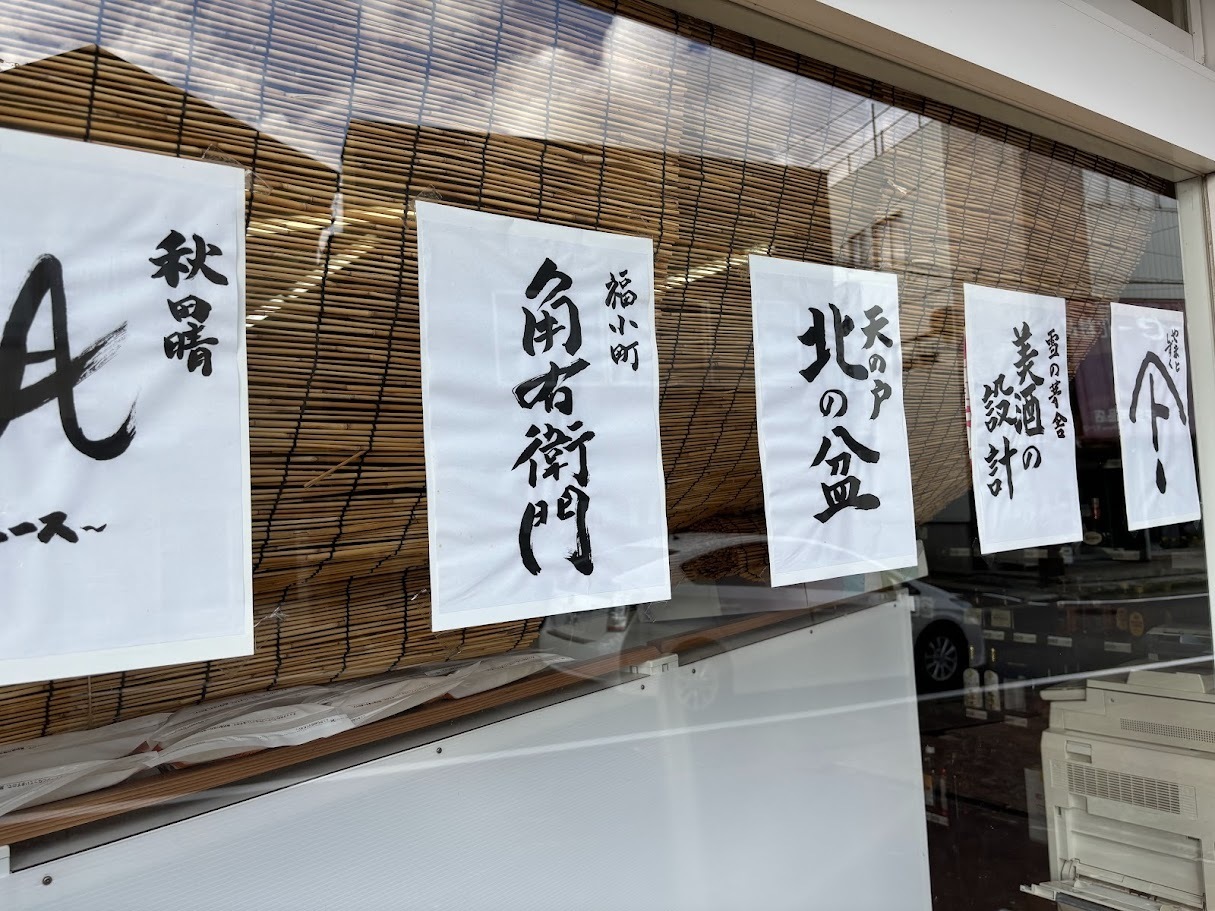 秋田晴
ース～
福小町
角右衛門
天の戸
北の盆
雪の茅舎
美酒の
設計
やまと
しずく